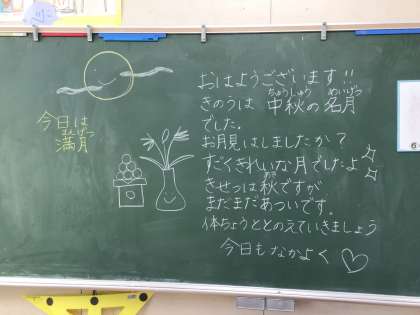 今日は
まんげつ
満月
おはようございます!!
ちゅうしゅう めいげつ
きのうは 中秋の名月
でした。
お月見はしましたか?
すごくきれいな月でしたよ
きせつは秋ですが
まだまだあついです。
体ちょうととのえていきましょう
今日もなかよく♡